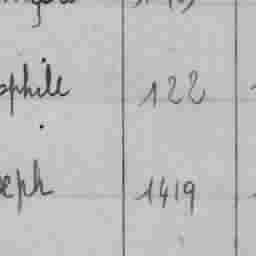 ophile 122
seph 1419